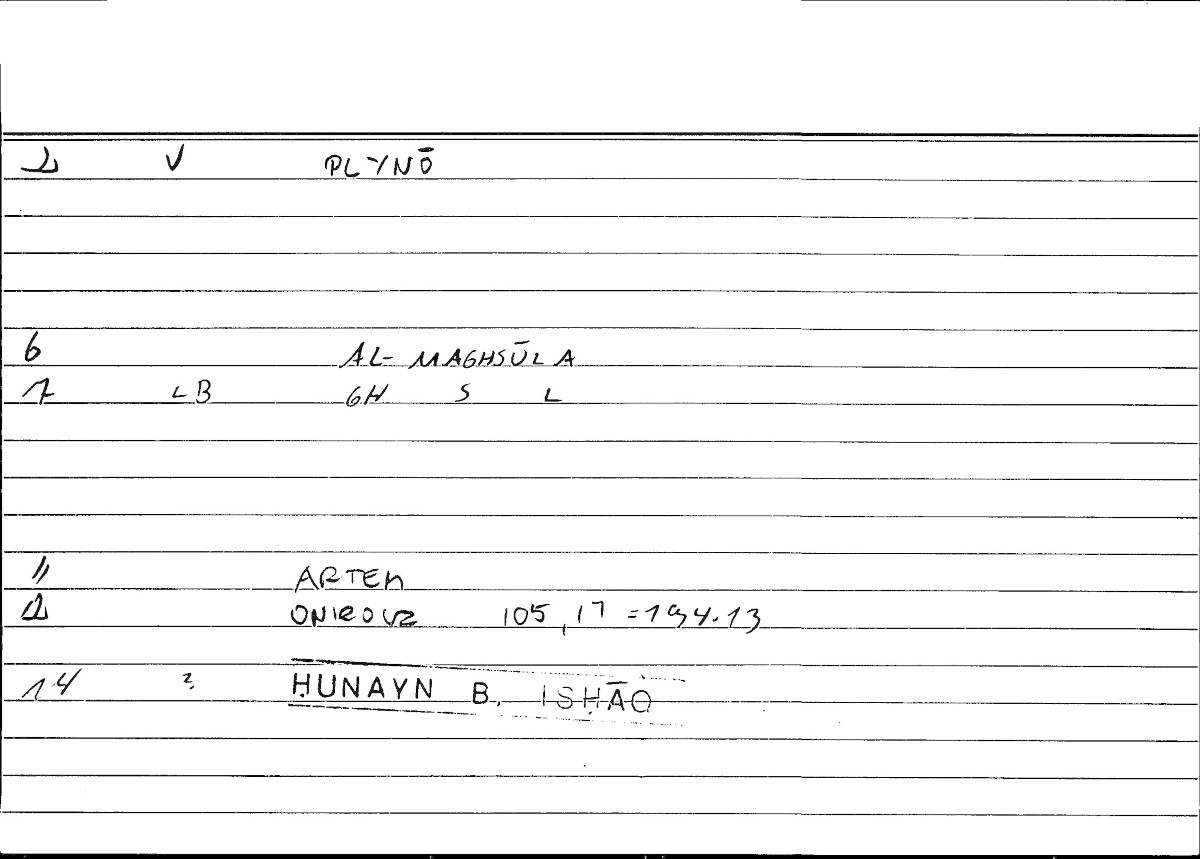 2 V PLYNŌ
6 AL-MAGHSŪLA
7 LB GH S L
11 ARTEM
12 ONIROCR 105,17 = 194.13
14 ? ḤUNAYN B. ISḤĀQ